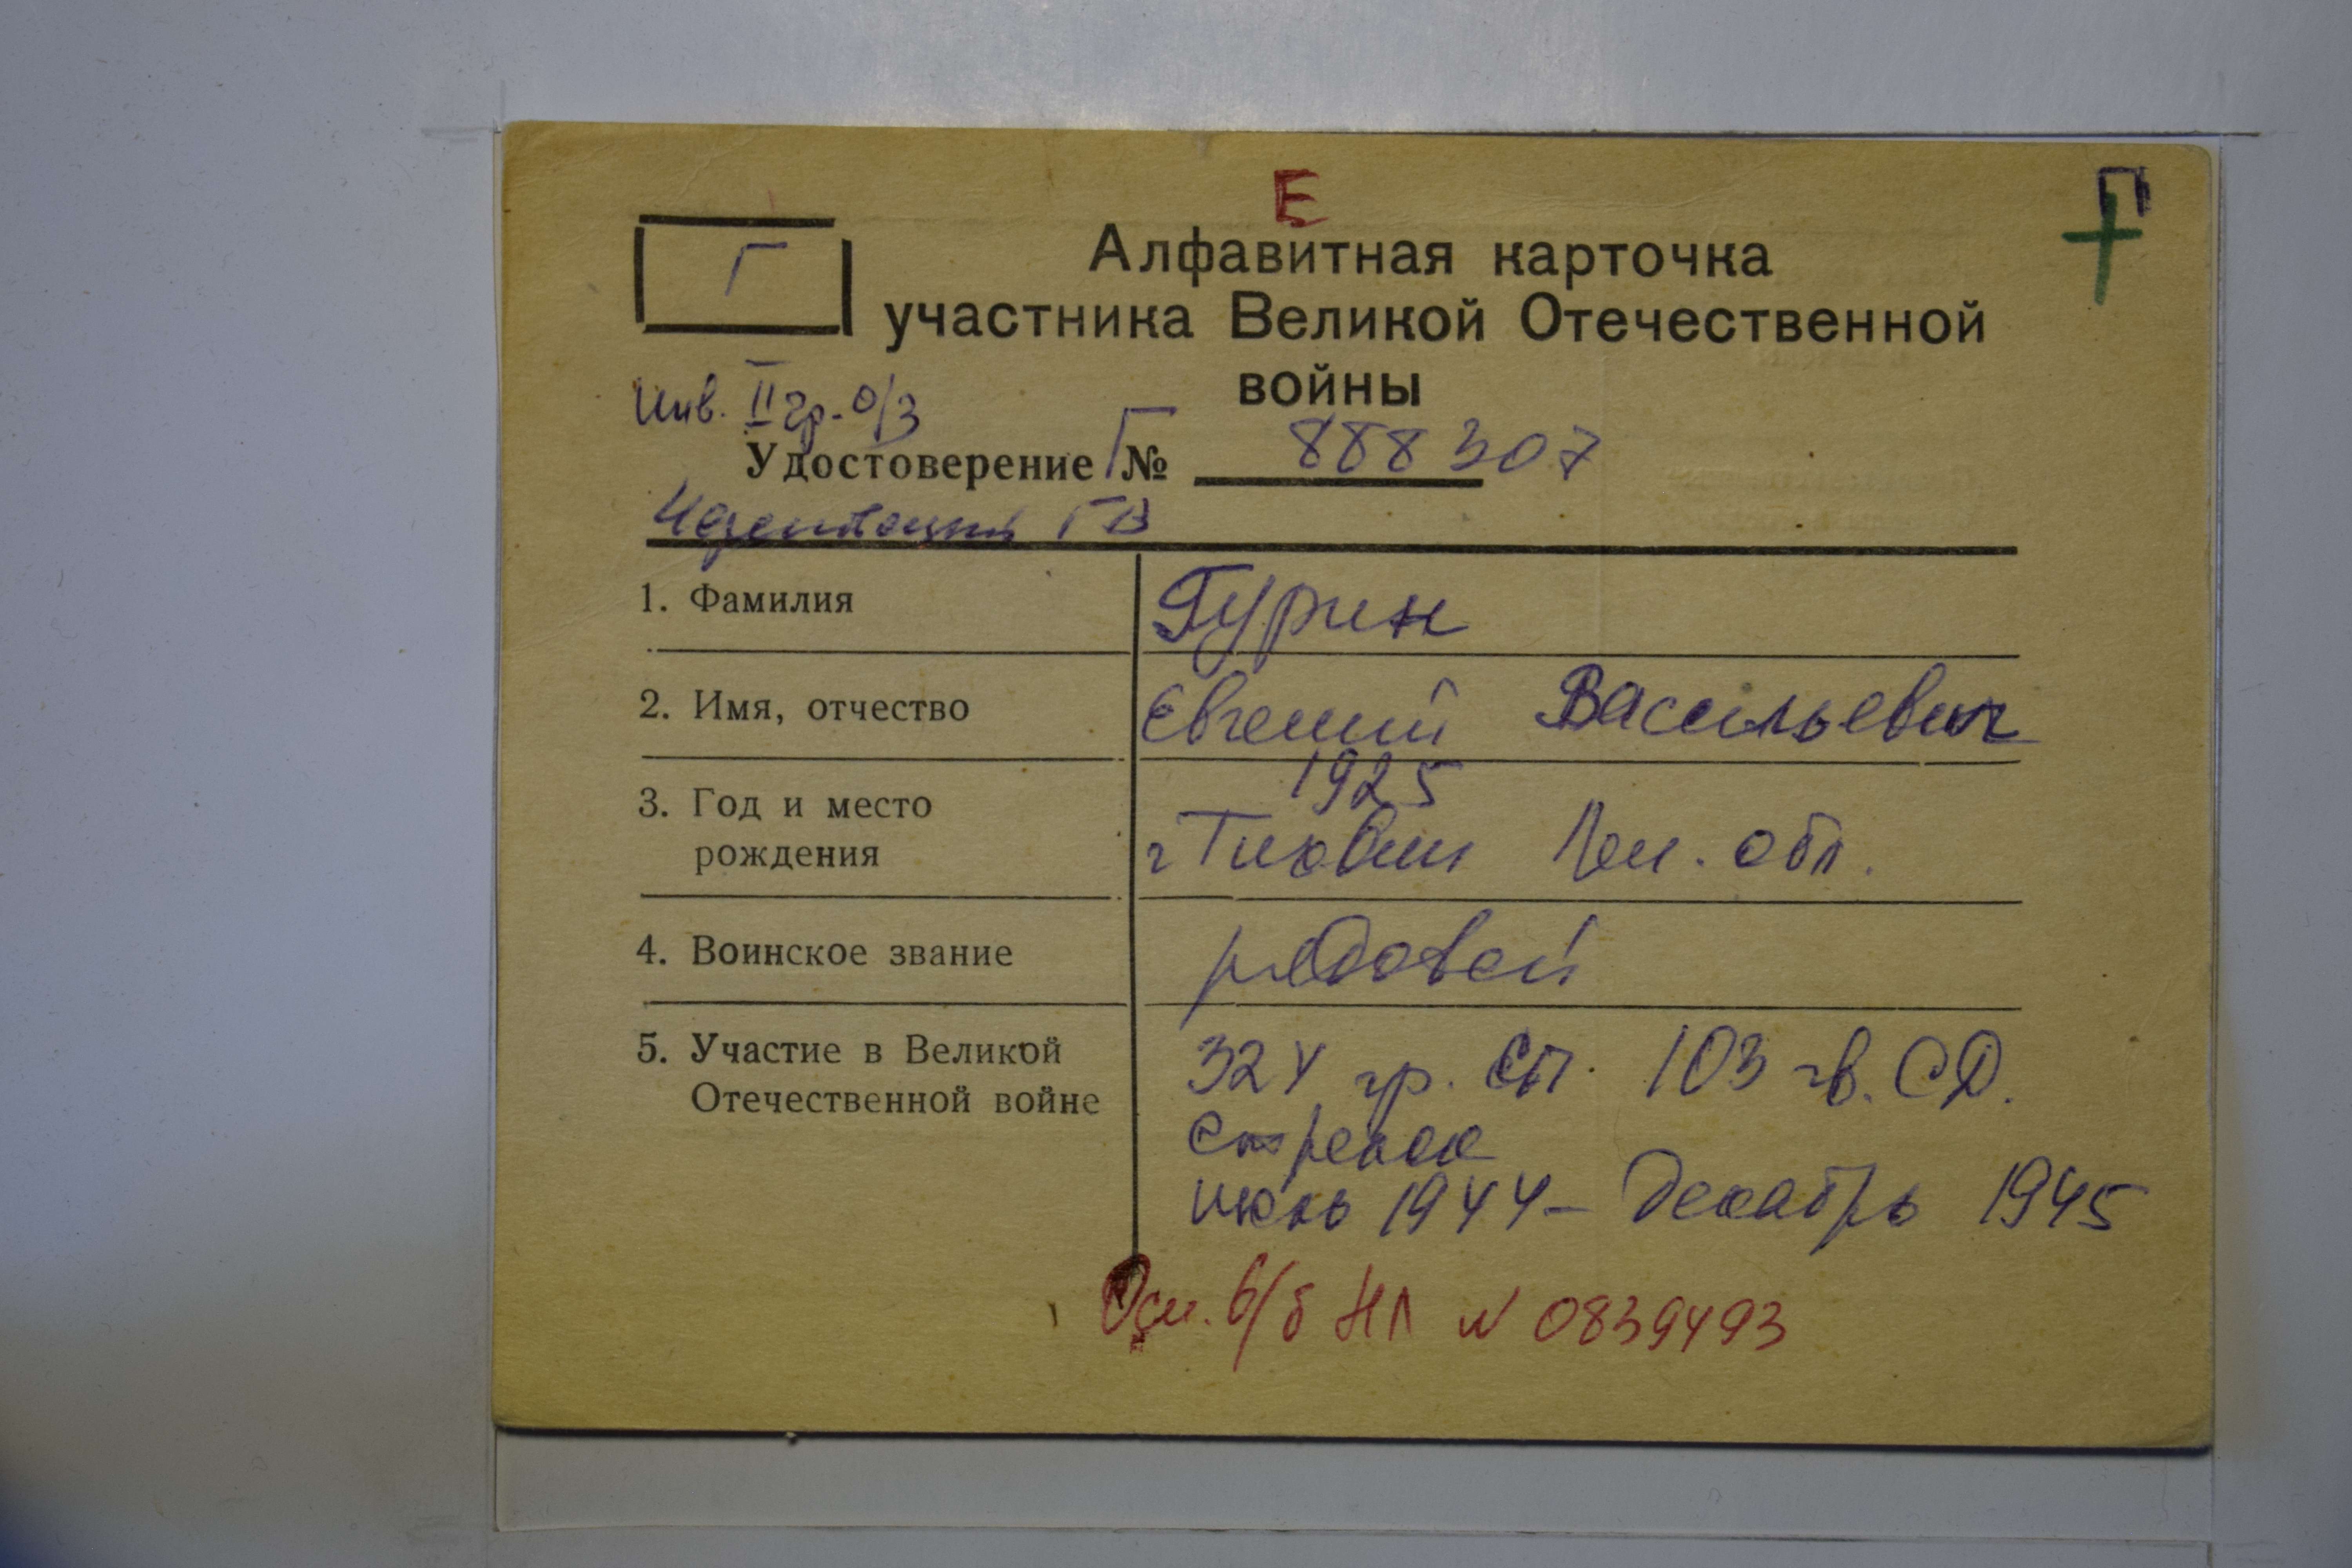 Е
П
Г
Алфавитная карточка
участника Великой Отечественной
войны
Инв. II гр. о/з
Удостоверение Г № 888307
ГВ
1. Фамилия Гурин
2. Имя, отчество Евгений Васильевич
3. Год и место 1925
рождения г Тихвин Лен. обл.
4. Воинское звание рядовой
5. Участие в Великой 324 гр. сп. 103 гв. СД.
Отечественной войне стрелок
июль 1944 - декабрь 1945
в/б НЛ N 0839493